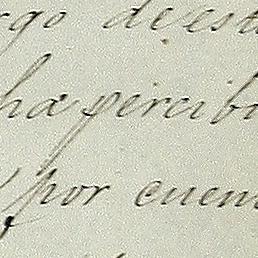 rgo de est
ha percib
por cuen